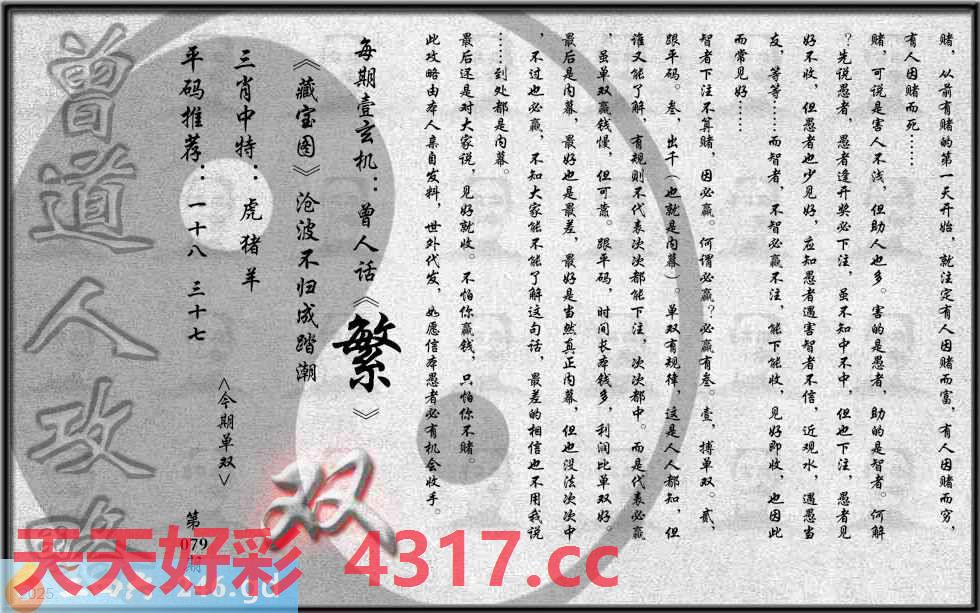 赌，从前有赌的第一天开始，就注定有人因赌而富，有人因赌而穷，
有人因赌而死……
赌，可说是害人不浅，但助人也多。害的是愚者，助的是智者。何解
？先说愚者，愚者逢开奖必下注，虽不知中不中，但也下注，愚者见
好不收，但愚者也少见好，应知愚者遇害智者不信，近观水，遇愚当
友，等等……而智者，不智必赢不注，能下能收，见好即收，也因此
而常见好……
智者下注不算赌，因必赢。何谓必赢？必赢有叁。壹，搏单双。贰，
跟平码。叁，出千（也就是内幕）。单双有规律，这是人人都知，但
谁又能了解，有规则不代表次次都能下注，次次都中。而是代表必赢
，虽单双赢钱慢，但可靠。跟平码，时间长本钱多，利润比单双好。
最后是内幕，最好也是最差，最好是当然真正内幕，但也没法次次中
，不过也必赢，不知大家能不能了解这句话，最差的相信也不用我说
……到处都是内幕。
最后还是对大家说，见好就收。不怕你赢钱，只怕你不赌。
此攻略由本人亲自发料，世外代发，如愿信本愚者必有机会收手。
每期壹玄机：曾人话《繁》
《藏宝图》沧波不归成踏潮
三肖中特：虎猪羊
平码推荐：一十八 三十七
<今期单双>
双
第
079
期
曾道人攻略
天天好彩 4317.cc
2025
246.gd